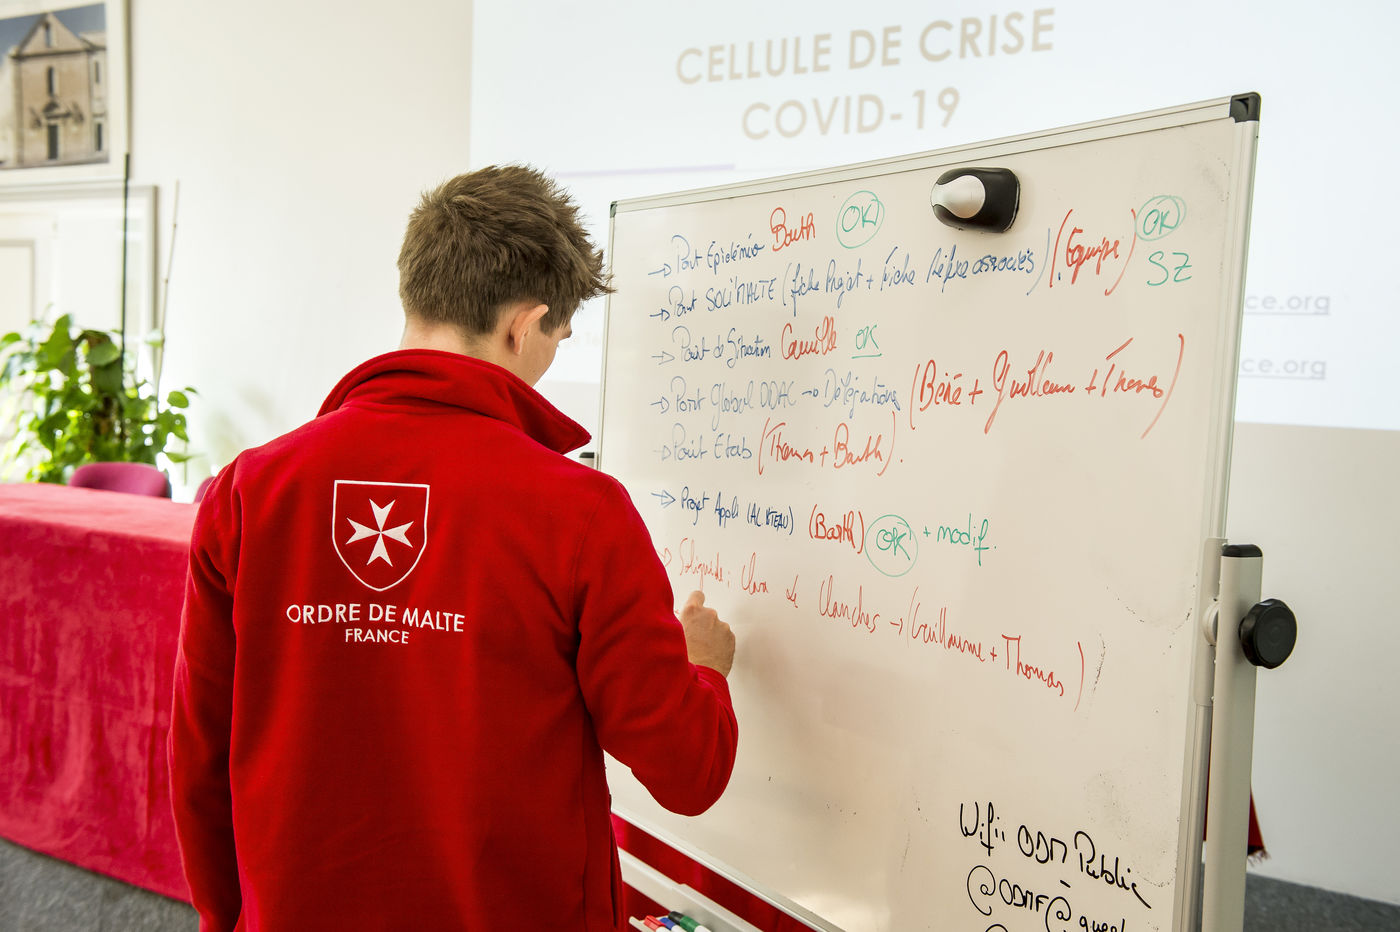 CELLULE DE CRISE
COVID-19
→ Point Epidémio Barth OK
→ Point SOLI'MALTE (fiche Projet + fiche associés) (Equipe) OK
SZ
→ Point de Situation Camille OK
→ Point Global DDAC → Délégations (Béné + Guillaum + Thomas)
→ Point Etab (Thomas + Barth).
→ Projet Appli (Barth) OK + modif.
→ Soliguide : Clara Le Clanches → (Guillaume + Thomas)
ce.org
ce.org
ORDRE DE MALTE
FRANCE
Wifi ODM Public
@ODMF@guest